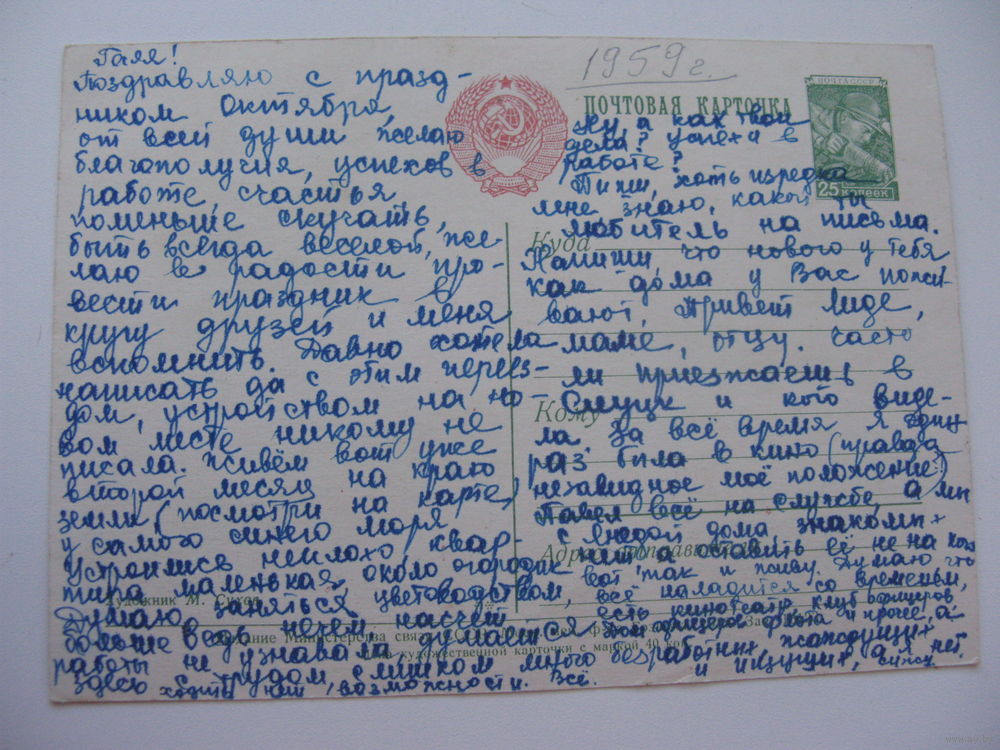 Галя!
Поздравляю с празд-
ником Октября,
от всей души желаю
благополучия, успехов в
работе, счастья,
поменьше скучать,
быть всегда веселой, же-
лаю в радости про-
вести праздник в
кругу друзей и меня
вспомнить. Давно хотела
написать да с этим переез-
дом, устройством на но-
вом месте никому не
писала. Живём вот уже
второй месяц на краю
земли (посмотри на карте)
у самого синего моря
Устроились неплохо квар-
тира маленькая, около огородик
Думаю заняться цветоводством,
больше ведь нечем насчёт
работы не узнавали, устроится
здесь с трудом, слишком много безработных
ходить нет возможности. Всё.
1959г.
ПОЧТОВАЯ КАРТОЧКА
ПОЧТА СССР
25 КОПЕЕК
Ну, а как твои
дела? успехи в
работе?
Пиши, хоть изредка
мне знаю, какой ты
любитель на письма.
Напиши что нового у тебя
как дома у Вас пожи-
вают, Привет Лиде,
маме, отцу. Часто
ли приезжаешь в
Слуцк и кого виде-
ла. За всё время я один
раз была в кино (правда
незавидное моё положение)
Павел всё на службе, а мы
с Людой дома знакомых
нет а оставить её не на кого
вот так и живу. Думаю что
всё наладится со временем,
есть кинотеатр, клуб офицеров,
дом офицеров флота и проче, а
и ищущих, а я нет.
Куда
Кому
Адрес отправителя
Художник М.
Издание Министерства связи СССР
художественной карточки с маркой 40 коп.